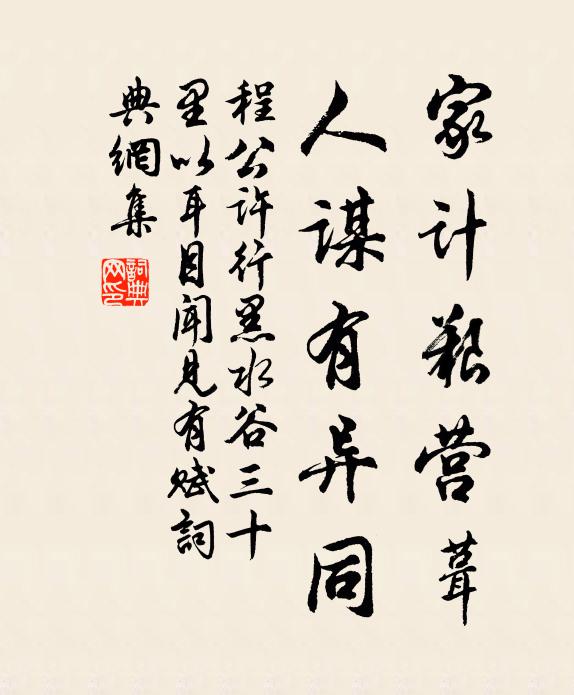 家计艰营葺
人谋有异同
程公许行黑水谷三十
里以耳目闻见有赋詞
典網集
詞典网印